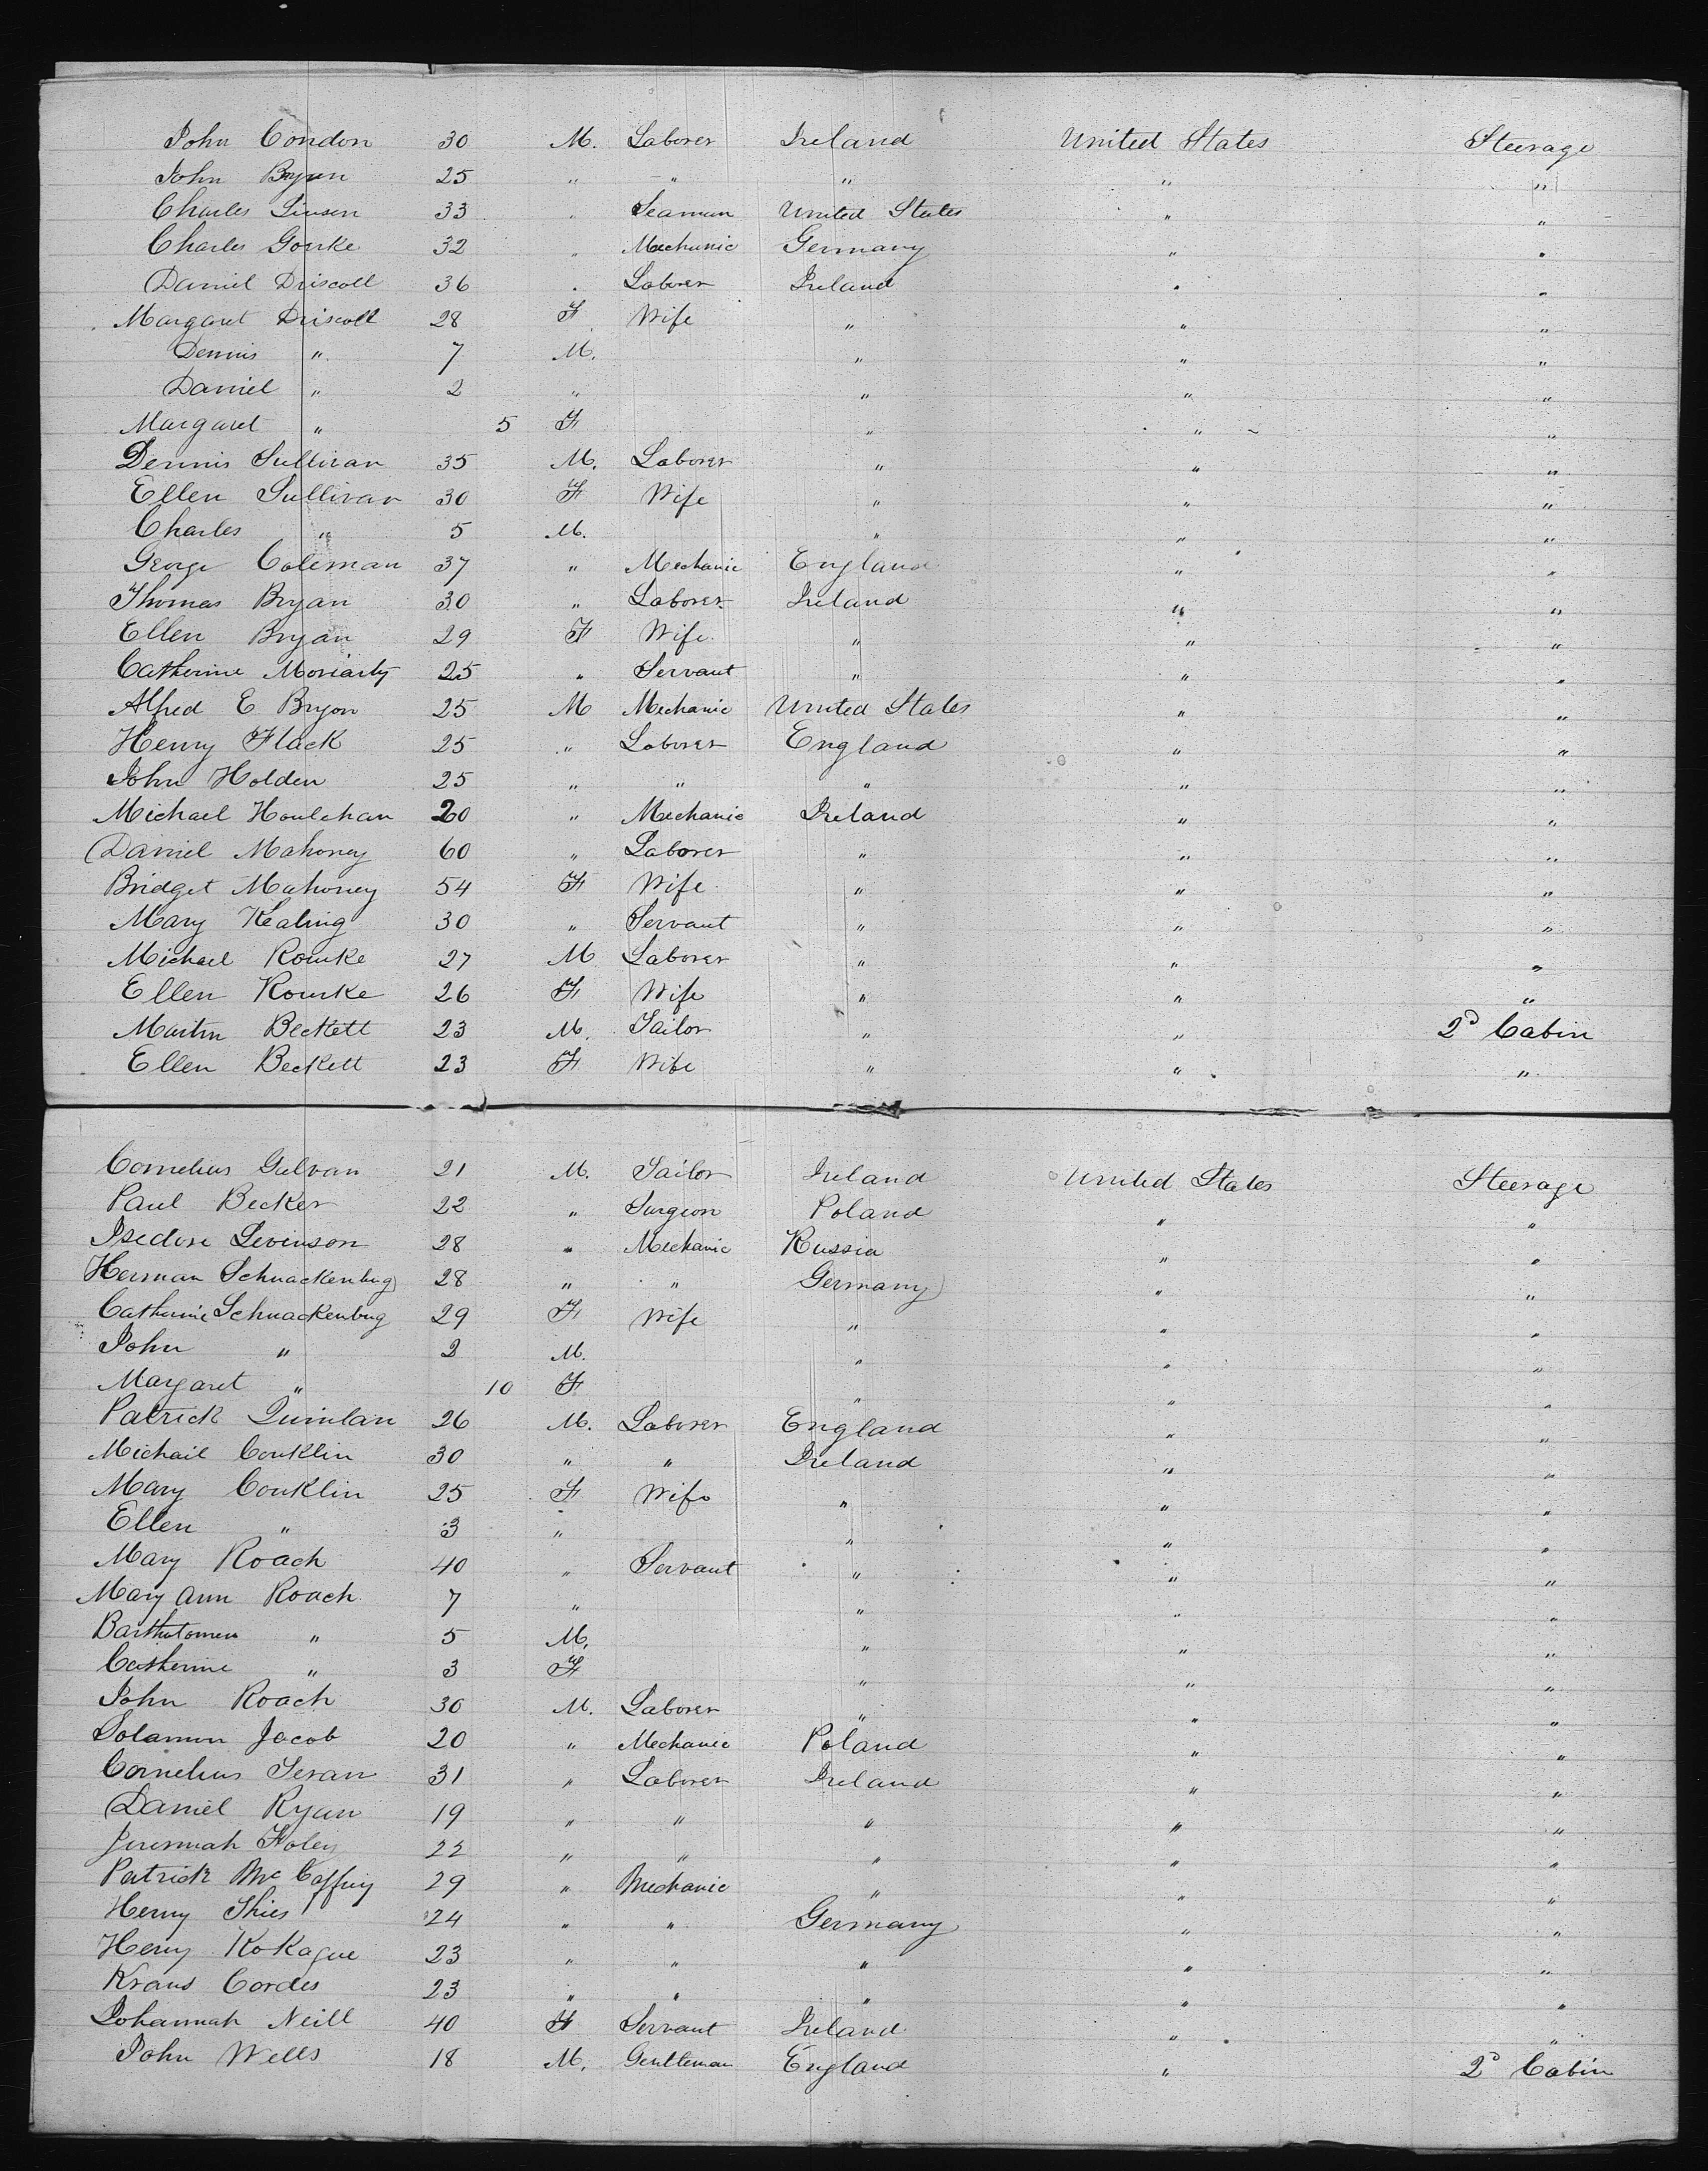 John Condon 30 M. Laborer Ireland United States Steerage
John Bryen 25 " " " " "
Charles Linsen 33 " Seaman United States " "
Charles Gourke 32 " Mechanic Germany " "
Daniel Driscoll 36 " Laborer Ireland " "
Margaret Driscoll 28 F Wife " " "
Dennis " 7 M. " " "
Daniel " 2 " " " "
Margaret " 5 F " " "
Dennis Sullivan 35 M. Laborer " " "
Ellen Sullivan 30 F Wife " " "
Charles " 5 M. " " "
George Coleman 37 " Mechanic England " "
Thomas Bryan 30 " Laborer Ireland " "
Ellen Bryan 29 F Wife " " "
Catherine Moriarty 25 " Servant " " "
Alfred E Bryon 25 M Mechanic United States " "
Henry Flack 25 " Laborer England " "
John Holden 25 " " " " "
Michael Houlehan 20 " Mechanic Ireland " "
Daniel Mahoney 60 " Laborer " " "
Bridget Mahoney 54 F Wife " " "
Mary Kealing 30 " Servant " " "
Michael Rourke 27 M Laborer " " "
Ellen Rourke 26 F Wife " " "
Martin Beckett 23 M. Tailor " " 2d Cabin
Ellen Beckett 23 F Wife " " "
Cornelius Galvan 21 M. Sailor Ireland United States Steerage
Paul Becker 22 " Surgeon Poland " "
Isedore Levenson 28 " Mechanic Russia " "
Herman Schnackenbug 28 " " Germany " "
Catherine Schnackenbug 29 F Wife " " "
John " 2 M. " " "
Margaret " 10 F " " "
Patrick Quinlan 26 M. Laborer England " "
Michail Conklin 30 " " Ireland " "
Mary Conklin 25 F Wife " " "
Ellen " 3 " " " "
Mary Roach 40 " Servant " " "
Mary Ann Roach 7 " " " "
Bartholomew " 5 M. " " "
Catherine " 3 F " " "
John Roach 30 M. Laborer " " "
Solamon Jacob 20 " Mechanic Poland " "
Cornelius 31 " Laborer Ireland " "
Daniel Ryan 19 " " " " "
Jeremiah Foley 22 " " " " "
Patrick McCaffrey 29 " Mechanic " " "
Henry Thies 24 " " Germany " "
Henry KoKague 23 " " " " "
Kraus Cordes 23 " " " " "
Johannah Neill 40 F Servant Ireland " "
John Wells 18 M. Gentleman England " 2d Cabin